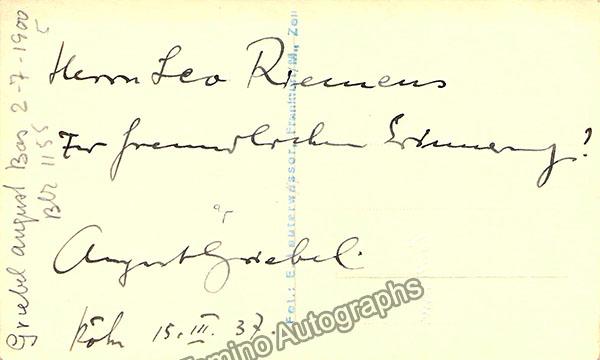 Herrn Leo Riemens
Zur freundlichen Erinnerung!
August Griebel.
Köln 15. III. 37.
Griebel august Bas 2-7-1900
5
Blz 1155
Fot.: E. Nauterwasser, Frankfurt/M., Zeil
Tamino Autographs